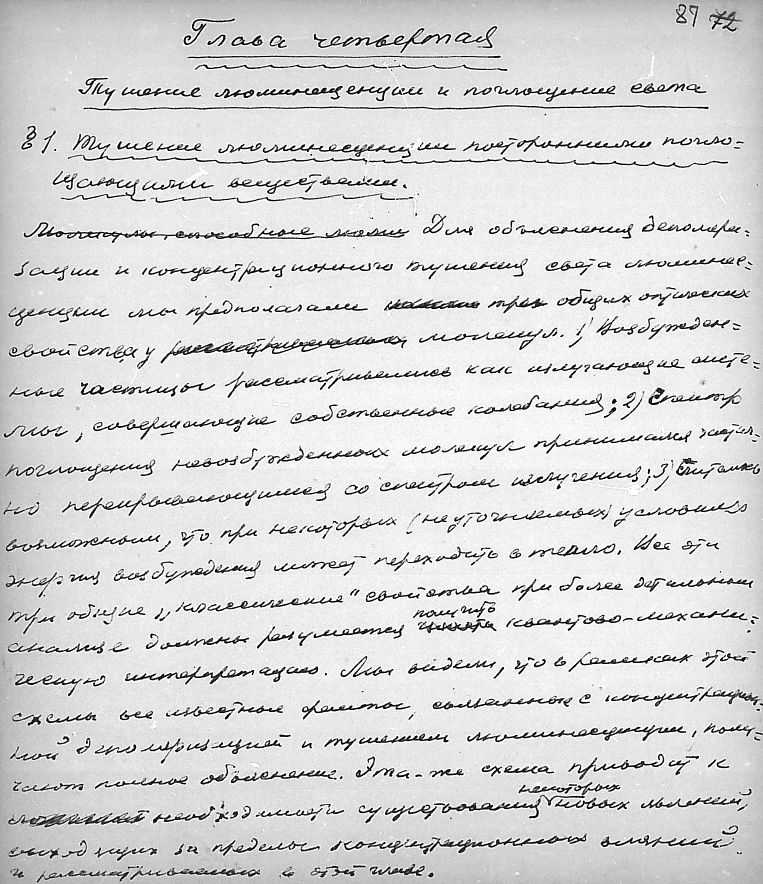 87 72
Глава четвертая
Тушение люминесценции и поглощение света
§1. Тушение люминесценции посторонними погло-
щающими веществами.
Молекулы, способные Для объяснения деполяри-
зации и концентрационного тушения света люминес-
ценции мы предполагали три общих оптических
свойства у рассматриваемых молекул. 1) Возбужден-
ные частицы рассматривались как излучающие систе-
мы, совершающие собственные колебания; 2) Спектр
поглощения невозбужденных молекул принимался частич-
но перекрывающимся со спектром излучения; 3) Считалось
возможным, что при некоторых (неуточняемых) условиях
энергия возбуждения может переходить в тепло. Все эти
три общие „классические" свойства при более детальном
анализе должны разумеется получить квантово-механи-
ческую интерпретацию. Мы видели, что в рамках этой
схемы все известные факты, связанные с концентрацион-
ной деполяризацией и тушением люминесценции, полу-
чают полное объяснение. Эта-же схема приводит к
необходимости существования некоторых новых явлений,
выходящих за пределы концентрационных влияний
и рассматриваемых в этой главе.